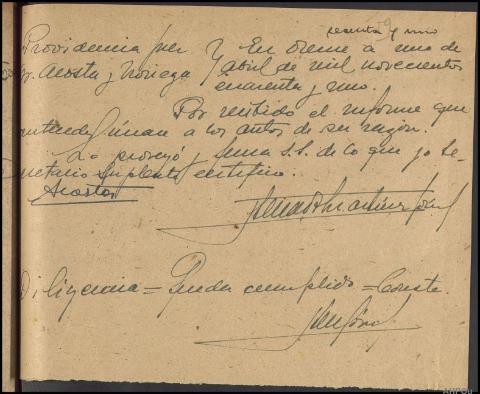 sesenta y uno
Providencia juez } En Orense a uno de
Sr. Acosta y Noriega } abril de mil novecientos
cuarenta y uno.
Por recibido el informe que
antecede únan a los autos de su razón.
Lo proveyó y firma S.S. de lo que yo Se-
cretario suplente certifico.
Acosta
Diligencia = Queda cumplido = Conste.